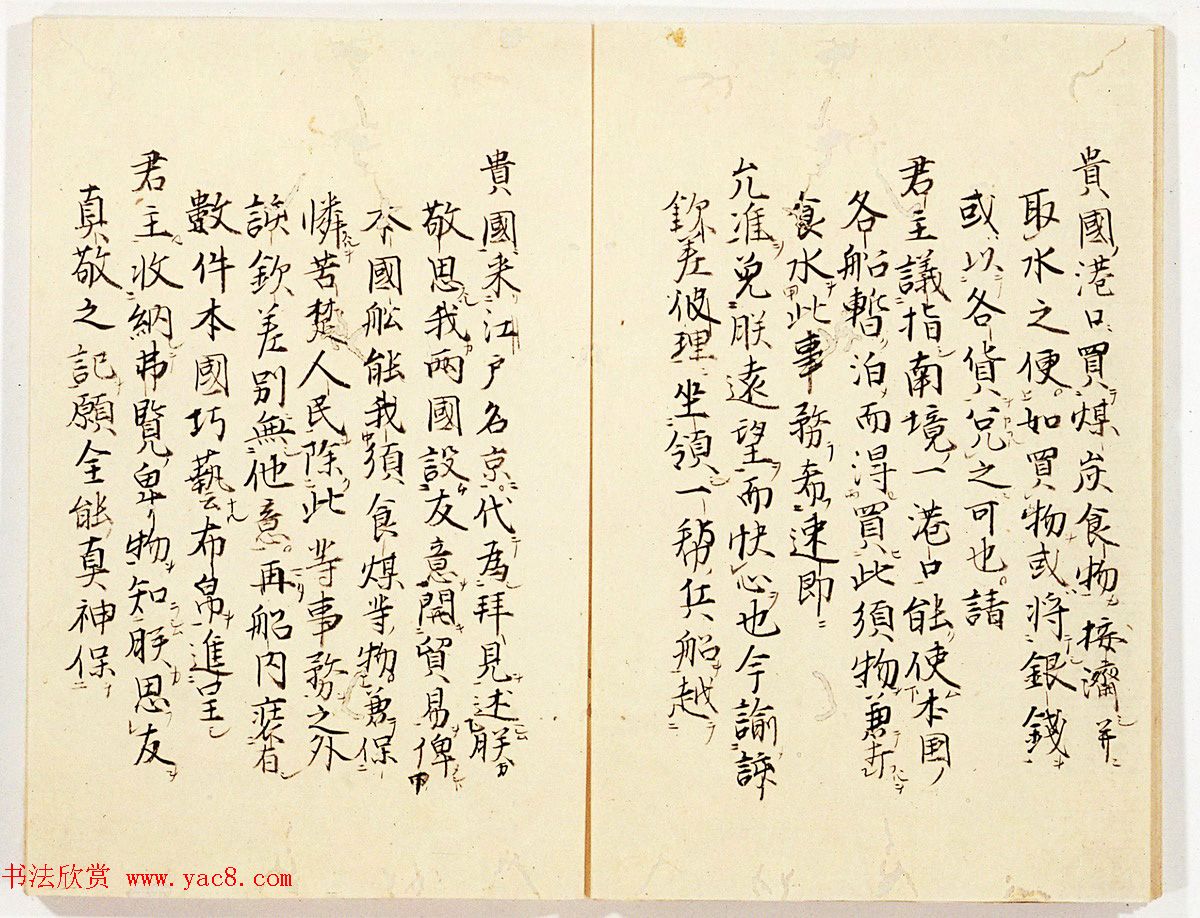 貴國港口買煤炭食物接濟并
取水之便如買物或将銀錢
或以各貨兌之可也請
君主議指南境一港口能使本国
各船暫泊而淂買此須物兼
食水此事務希速即
允准免朕遠望而快心也今諭
欽差彼理坐領一幇兵船越
貴國来江戸名京代為拜見述朕
敬思我兩國設友意開貿易俾
本國船能我須食煤等物兼保
憐苦楚人民除此等事務之外
諒欽差別無他意再船内裝有
數件本國巧藝布帛進呈
君主收納弗覽卑物知朕思友
真敬之記願全能真神保
书法欣赏 www.yac8.com